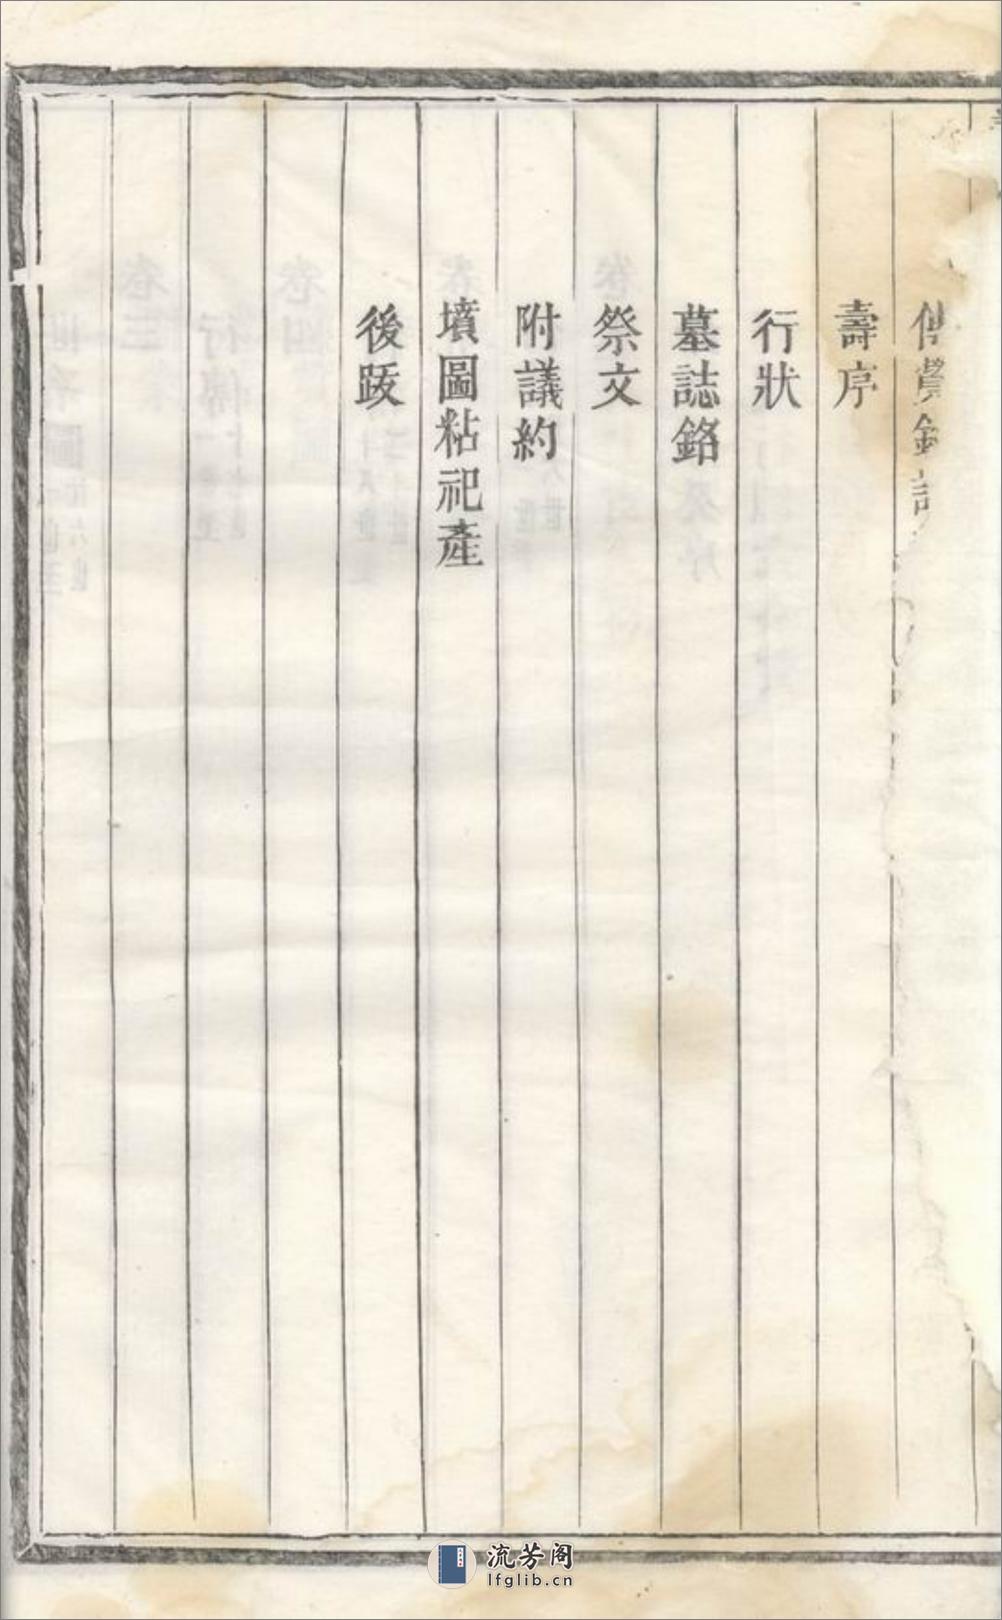 壽序
行狀
墓誌銘
祭文
附議約
墳圖粘祀產
後跋
流芳阁
lfglib.cn